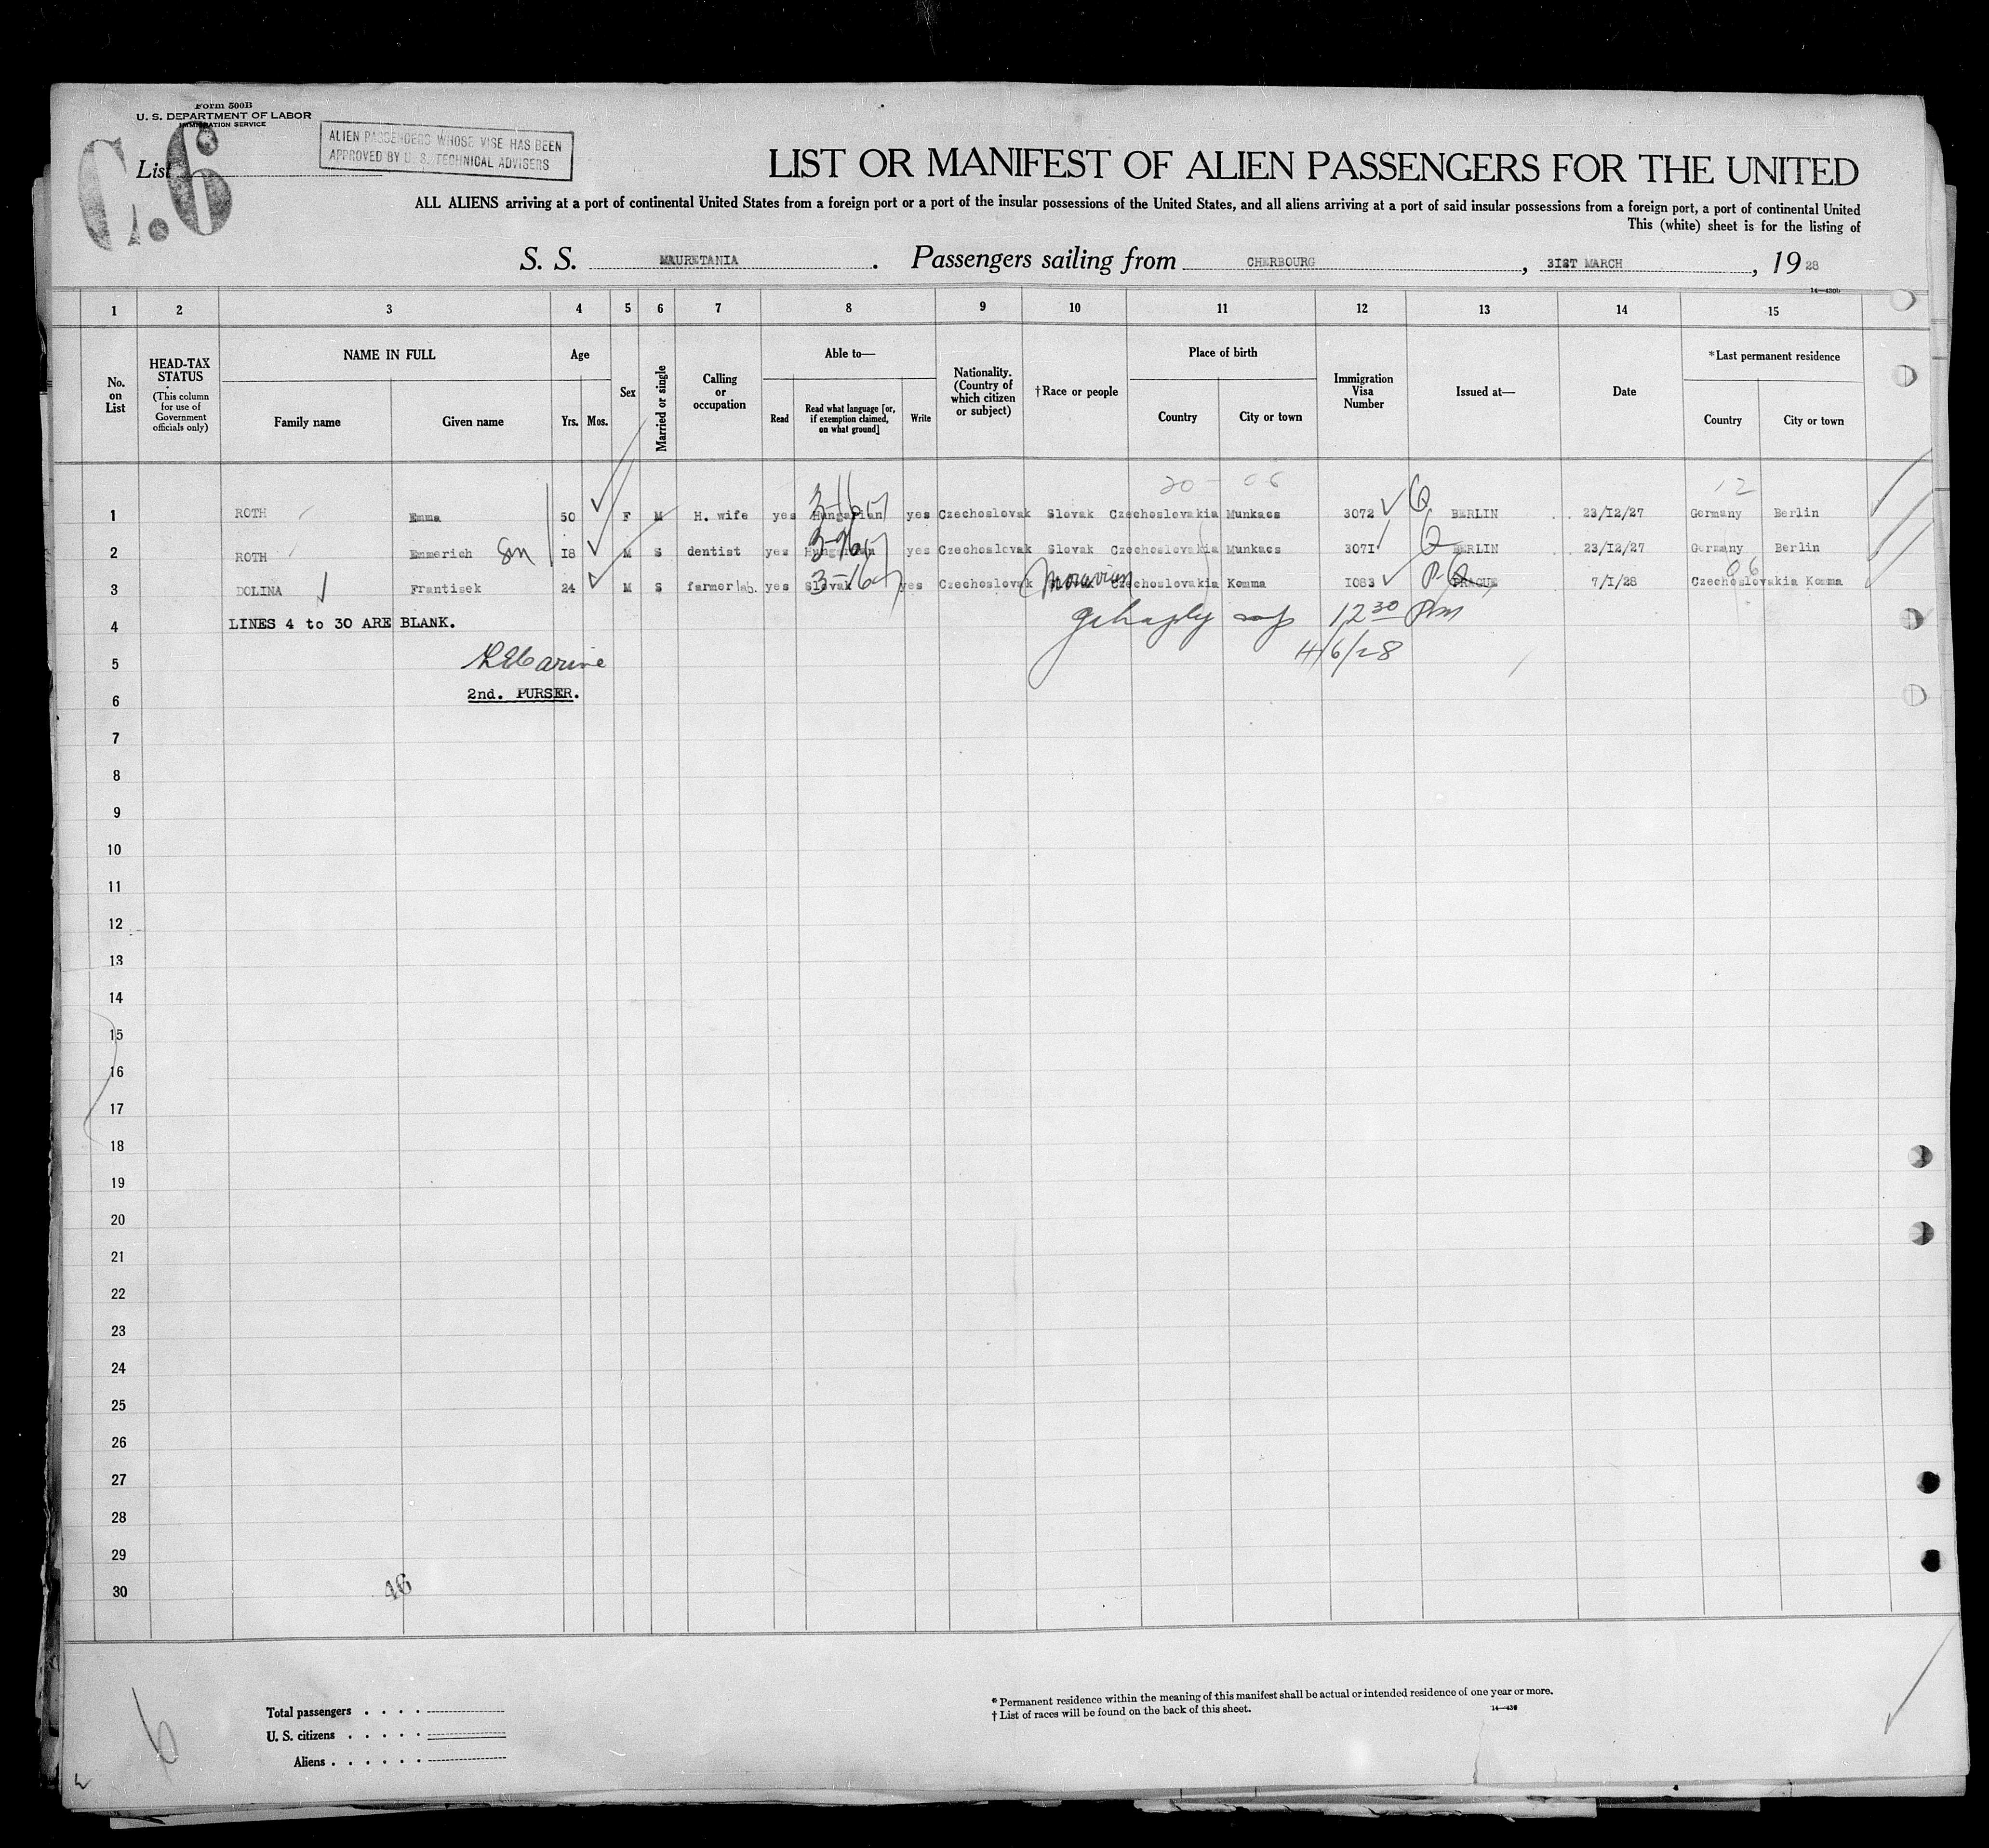 Form 500B
U. S. DEPARTMENT OF LABOR
IMMIGRATION SERVICE
C.6
List
ALIEN PASSENGERS WHOSE VISE HAS BEEN
APPROVED BY U. S. TECHNICAL ADVISERS
LIST OR MANIFEST OF ALIEN PASSENGERS FOR THE UNITED
ALL ALIENS arriving at a port of continental United States from a foreign port or a port of the insular possessions of the United States, and all aliens arriving at a port of said insular possessions from a foreign port, a port of continental United
This (white) sheet is for the listing of
S. S. MAURETANIA. Passengers sailing from CHERBOURG, 31ST MARCH, 1928
14—430b
1 2 3 4 5 6 7 8 9 10 11 12 13 14 15
No. on List
HEAD-TAX STATUS (This column for use of Government officials only)
NAME IN FULL
Family name Given name
Age
Yrs. Mos.
Sex
Married or single
Calling or occupation
Able to—
Read
Read what language [or, if exemption claimed, on what ground]
Write
Nationality. (Country of which citizen or subject)
†Race or people
Place of birth
Country City or town
Immigration Visa Number
Issued at—
Date
*Last permanent residence
Country City or town
20 - 06 12
1 ROTH Emma 50 F M H. wife yes Hungarian yes Czechoslovak Slovak Czechoslovakia Munkacs 3072 BERLIN 23/12/27 Germany Berlin
2 ROTH Emmerich Son 18 M S dentist yes Hungarian yes Czechoslovak Slovak Czechoslovakia Munkacs 3071 BERLIN 23/12/27 Germany Berlin
06
3 DOLINA Frantisek 24 M S farmer lab. yes Slovak yes Czechoslovak Moravian Czechoslovakia Komma 1083 PRAGUE 7/1/28 Czechoslovakia Komma
4 LINES 4 to 30 ARE BLANK. 12 30 Pm
5 4/6/28
6 2nd. PURSER.
7
8
9
10
11
12
13
14
15
16
17
18
19
20
21
22
23
24
25
26
27
28
29
30
46
6
Total passengers
U. S. citizens
Aliens
* Permanent residence within the meaning of this manifest shall be actual or intended residence of one year or more.
† List of races will be found on the back of this sheet.
14—430